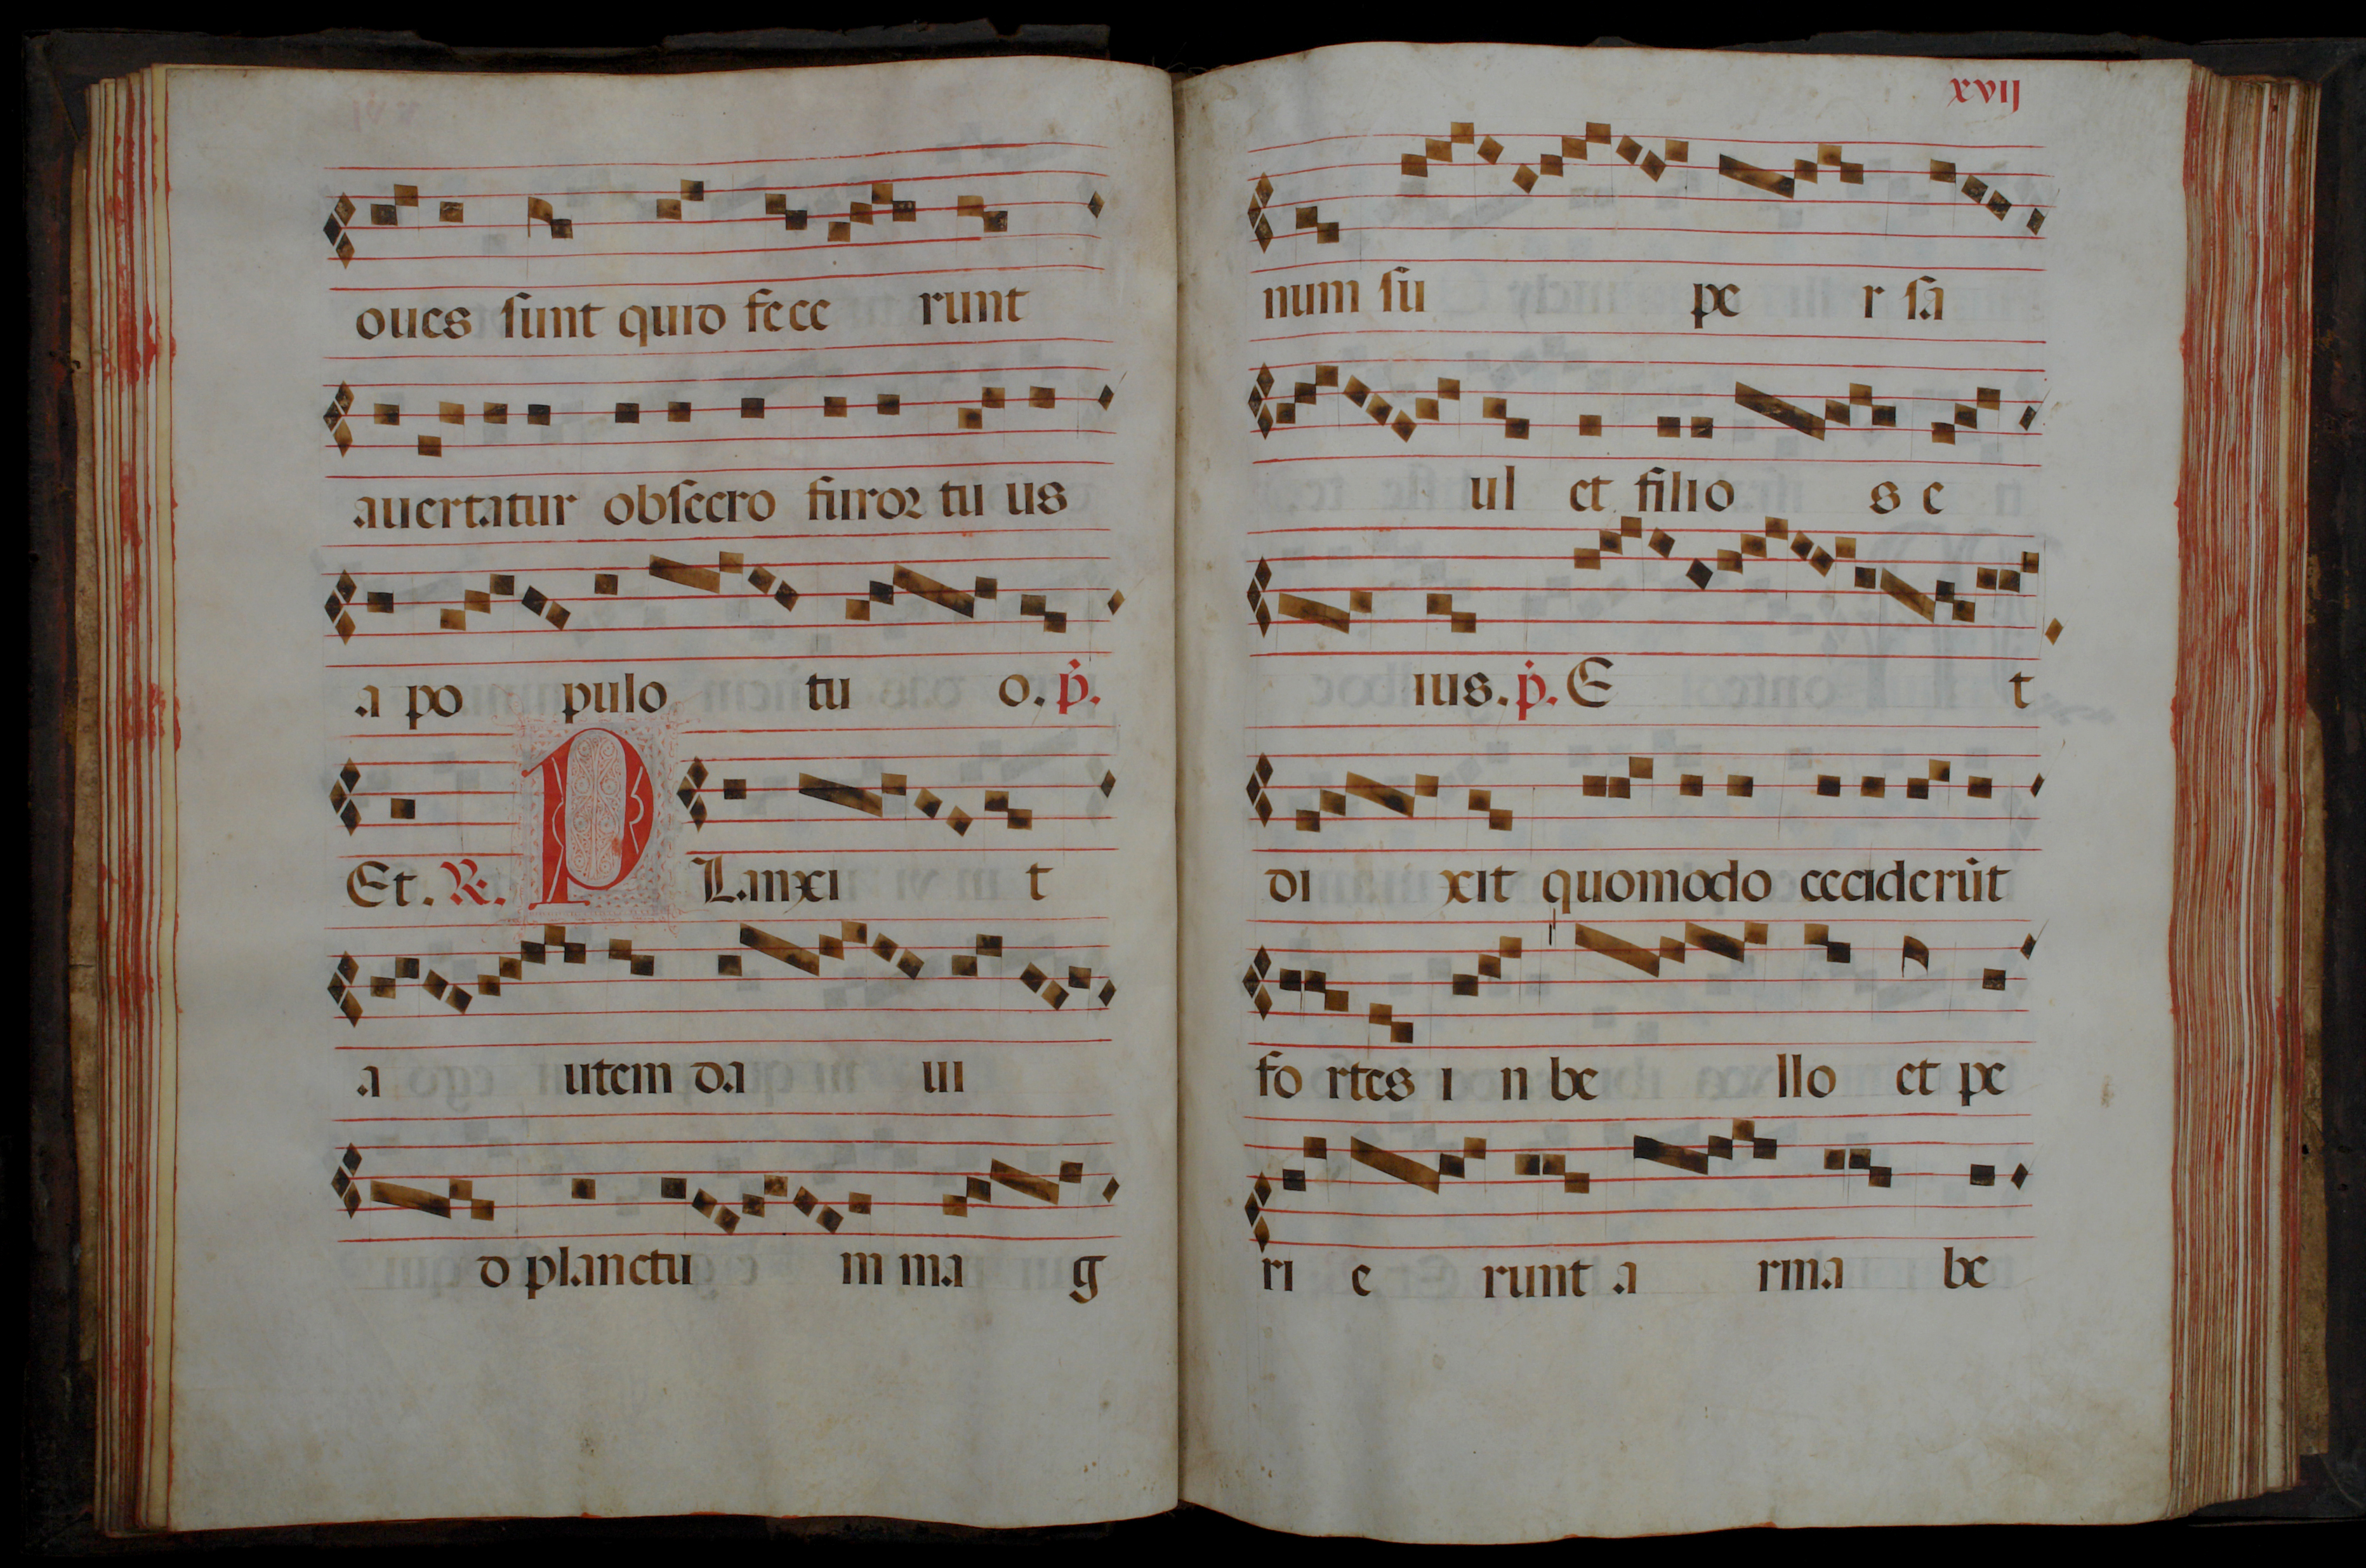 oues sunt quid fece runt
auertatur obsecro furor tu us
a po pulo tu o. p.
Et. R. P Lanxi t
a utem da ui
d planctu m ma g
xvij
num su pe r sa
ul et filio s e
ius. p. E t
di xit quomodo cecciderūt
fo rtes i n be llo et pe
ri e runt a rma be